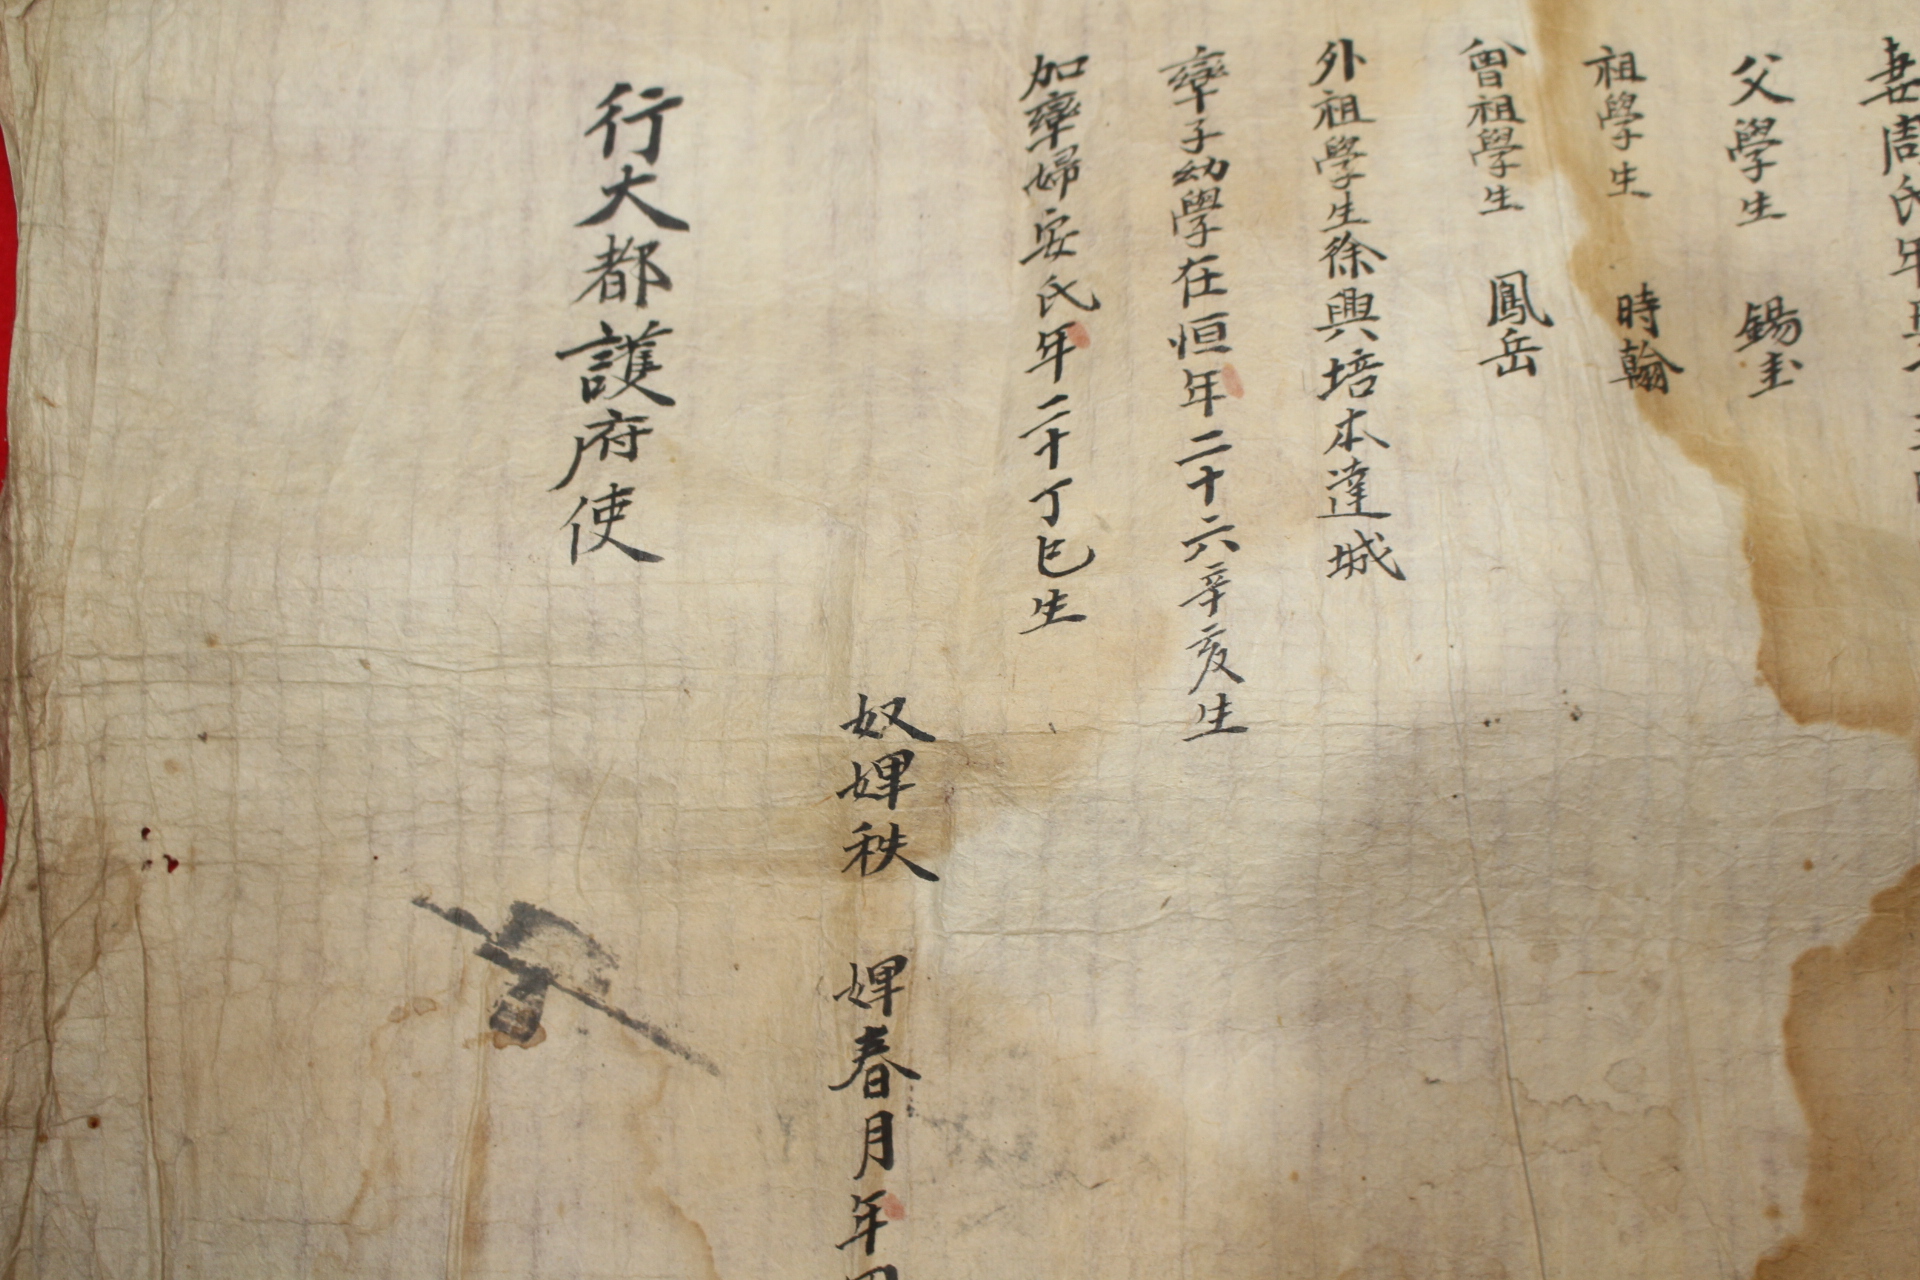 妻周氏年
父學生 錫圭
祖學生 時翰
曾祖學生 鳳岳
外祖學生徐興培本達城
率子幼學在恒年二十六辛亥生
加率婦安氏年二十丁巳生
奴婢秩 婢春月年四
行大都護府使